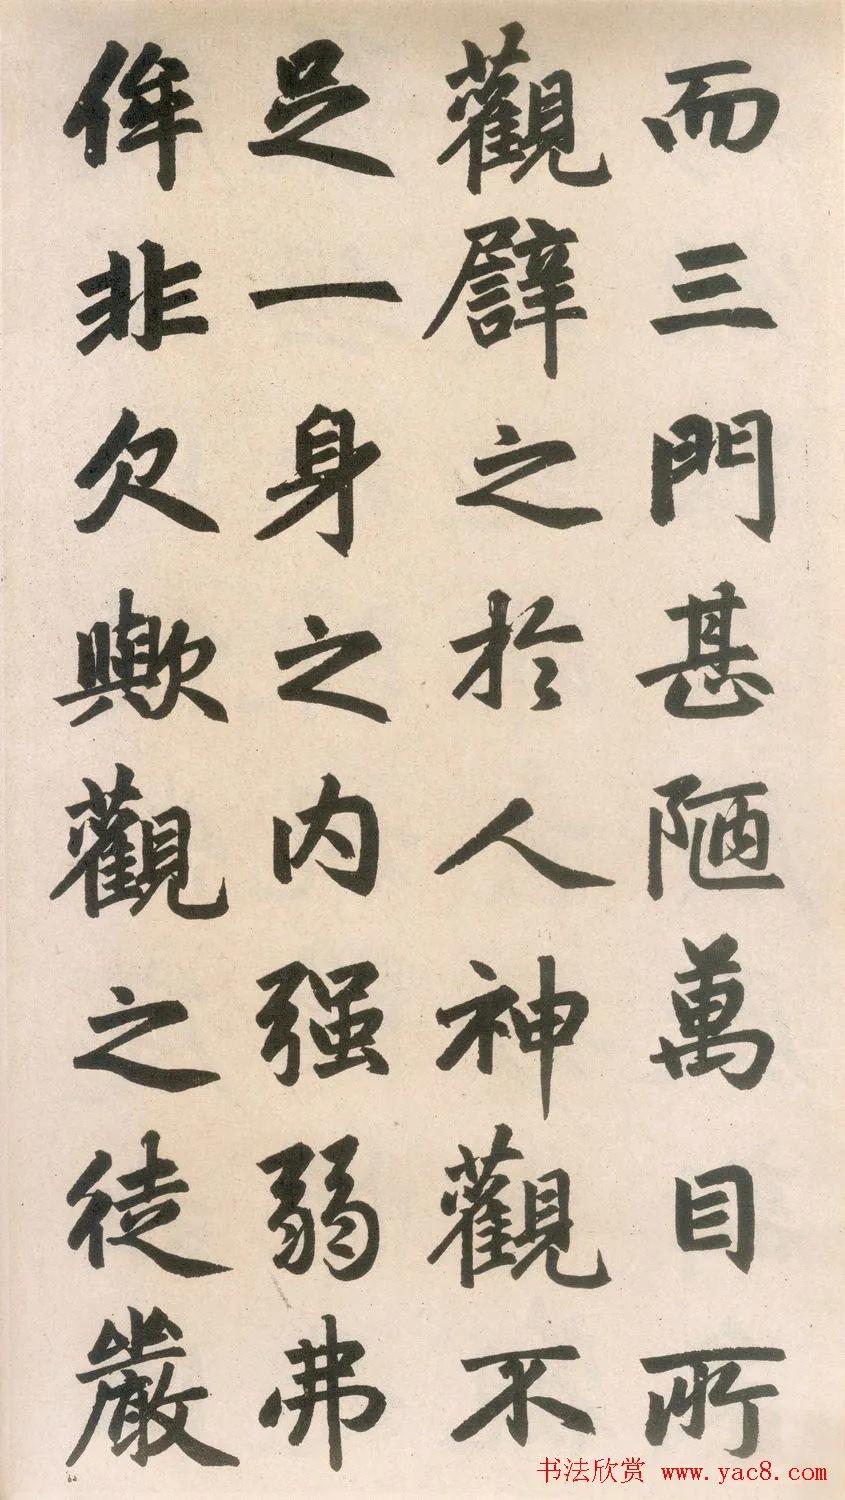 而三門甚陋萬目所
觀譬之於人神觀不
足一身之內强弱弗
侔非欠歟觀之徒嚴
书法欣赏 www.yac8.com